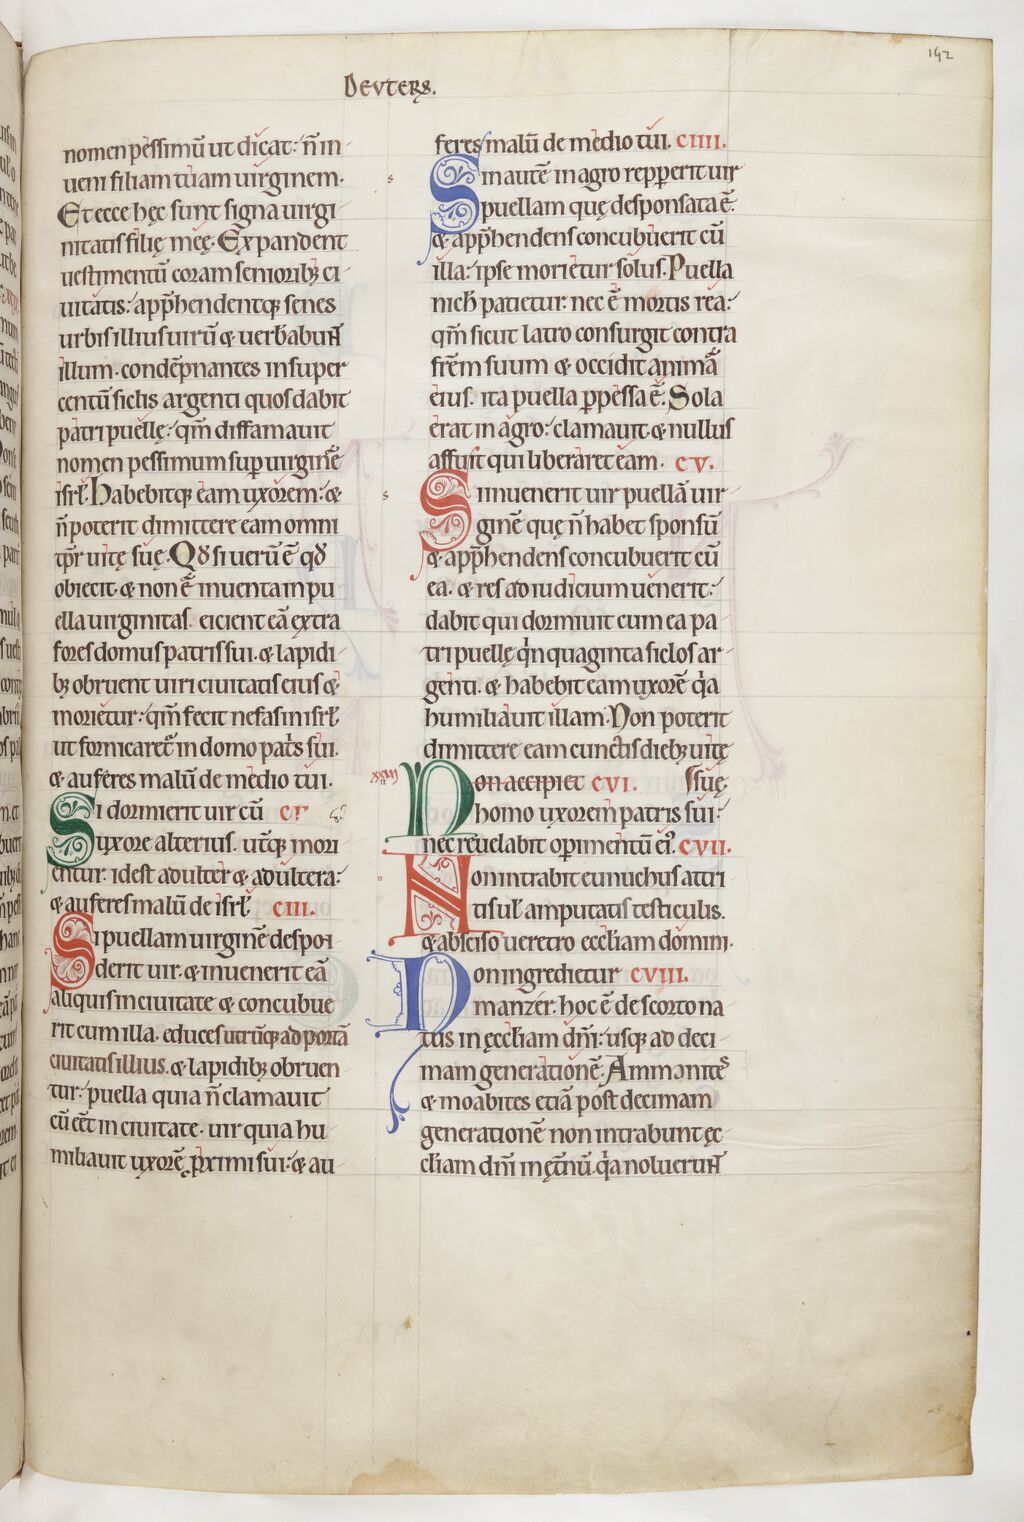 192
Deuters.
nomen pessimū ut dicat: n̄ in-
ueni filiam tuam uirginem.
Et ecce hęc sunt signa uirgi-
nitatis filię meę. Expandent
uestimentū coram seniorib; ci-
uitatis: app̄hendentq; senes
urbis illius uirū & uerb̄abunt
illum. condēpnantes insuper
centū siclis argenti quos dabit
patri puellę: qm̄ diffamauit
nomen pessimum sup uirginē
isrł. Habebitq; eam uxorem: &
n̄ poterit dimittere eam omni
tp̄r uitę suę. Qđ si uerū ē qđ
obiecit. & non ē inuenta in pu-
ella uirginitas. eicient eā extra
fores domus patris sui. & lapidi-
b; obruent uiri ciuitatis eius &
morietur: qm̄ fecit nefas in isrł
ut fornicaret̄ in domo pat̄s sui.
& auferes malū de medio tui.
Si dormierit uir cū
uxore alterius. ut̄q; mori-
entur. id est adulter & adultera:
& auferes malū de isrł CIII.
Si puellam uirginē despon-
derit uir. & inuenerit eā
aliquis in ciuitate & concubue-
rit cum illa. educes utrūq; ad portā
ciuitatis illius. & lapidib; obruen-
tur: puella quia n̄ clamauit
cū eēt in ciuitate. uir quia hu-
miliauit uxorē p̄ximi sui: & au-
feres malū de medio tui. CIIII.
Sin autē in agro repperit uir
puellam quę desponsata ē:
& app̄hendens concubuerit cū
illa: ipse morietur solus. Puella
nich̄ patietur. nec ē mortis rea:
qm̄ sicut latro consurgit contra
fr̄em suum & occidit animā
eius. ita puella p̱pessa ē. Sola
erat in agro: clamauit & nullus
affuit qui liberaret eam. CV.
Si inuenerit uir puellā uir-
ginē quę n̄ habet sponsū
& app̄hendens concubuerit cū
ea. & res ad iudicium uenerit:
dabit qui dormiuit cum ea pa-
tri puellę q̄nquaginta siclos ar-
genti. & habebit eam uxorē q̄a
humiliauit illam. Non poterit
dimittere eam cunctis dieb; uitę
xxiii Non accipiet CVI. suę.
homo uxorem patris sui:
nec reuelabit op̱imentū ei᷒. CVII.
Non intrabit eunuchus attri-
tis uł amputatis testiculis.
& absciso ueretro ecc̄liam domini.
Non ingredietur CVIII.
manzer. hoc ē de scorto na-
tus in ęcc̄liam dn̄i: usq; ad deci-
mam generationē. Ammanites
& moabites etiā post decimam
generationē non intrabunt ęc-
cliam dn̄i in ęt̄nū. q̄a noluerunt